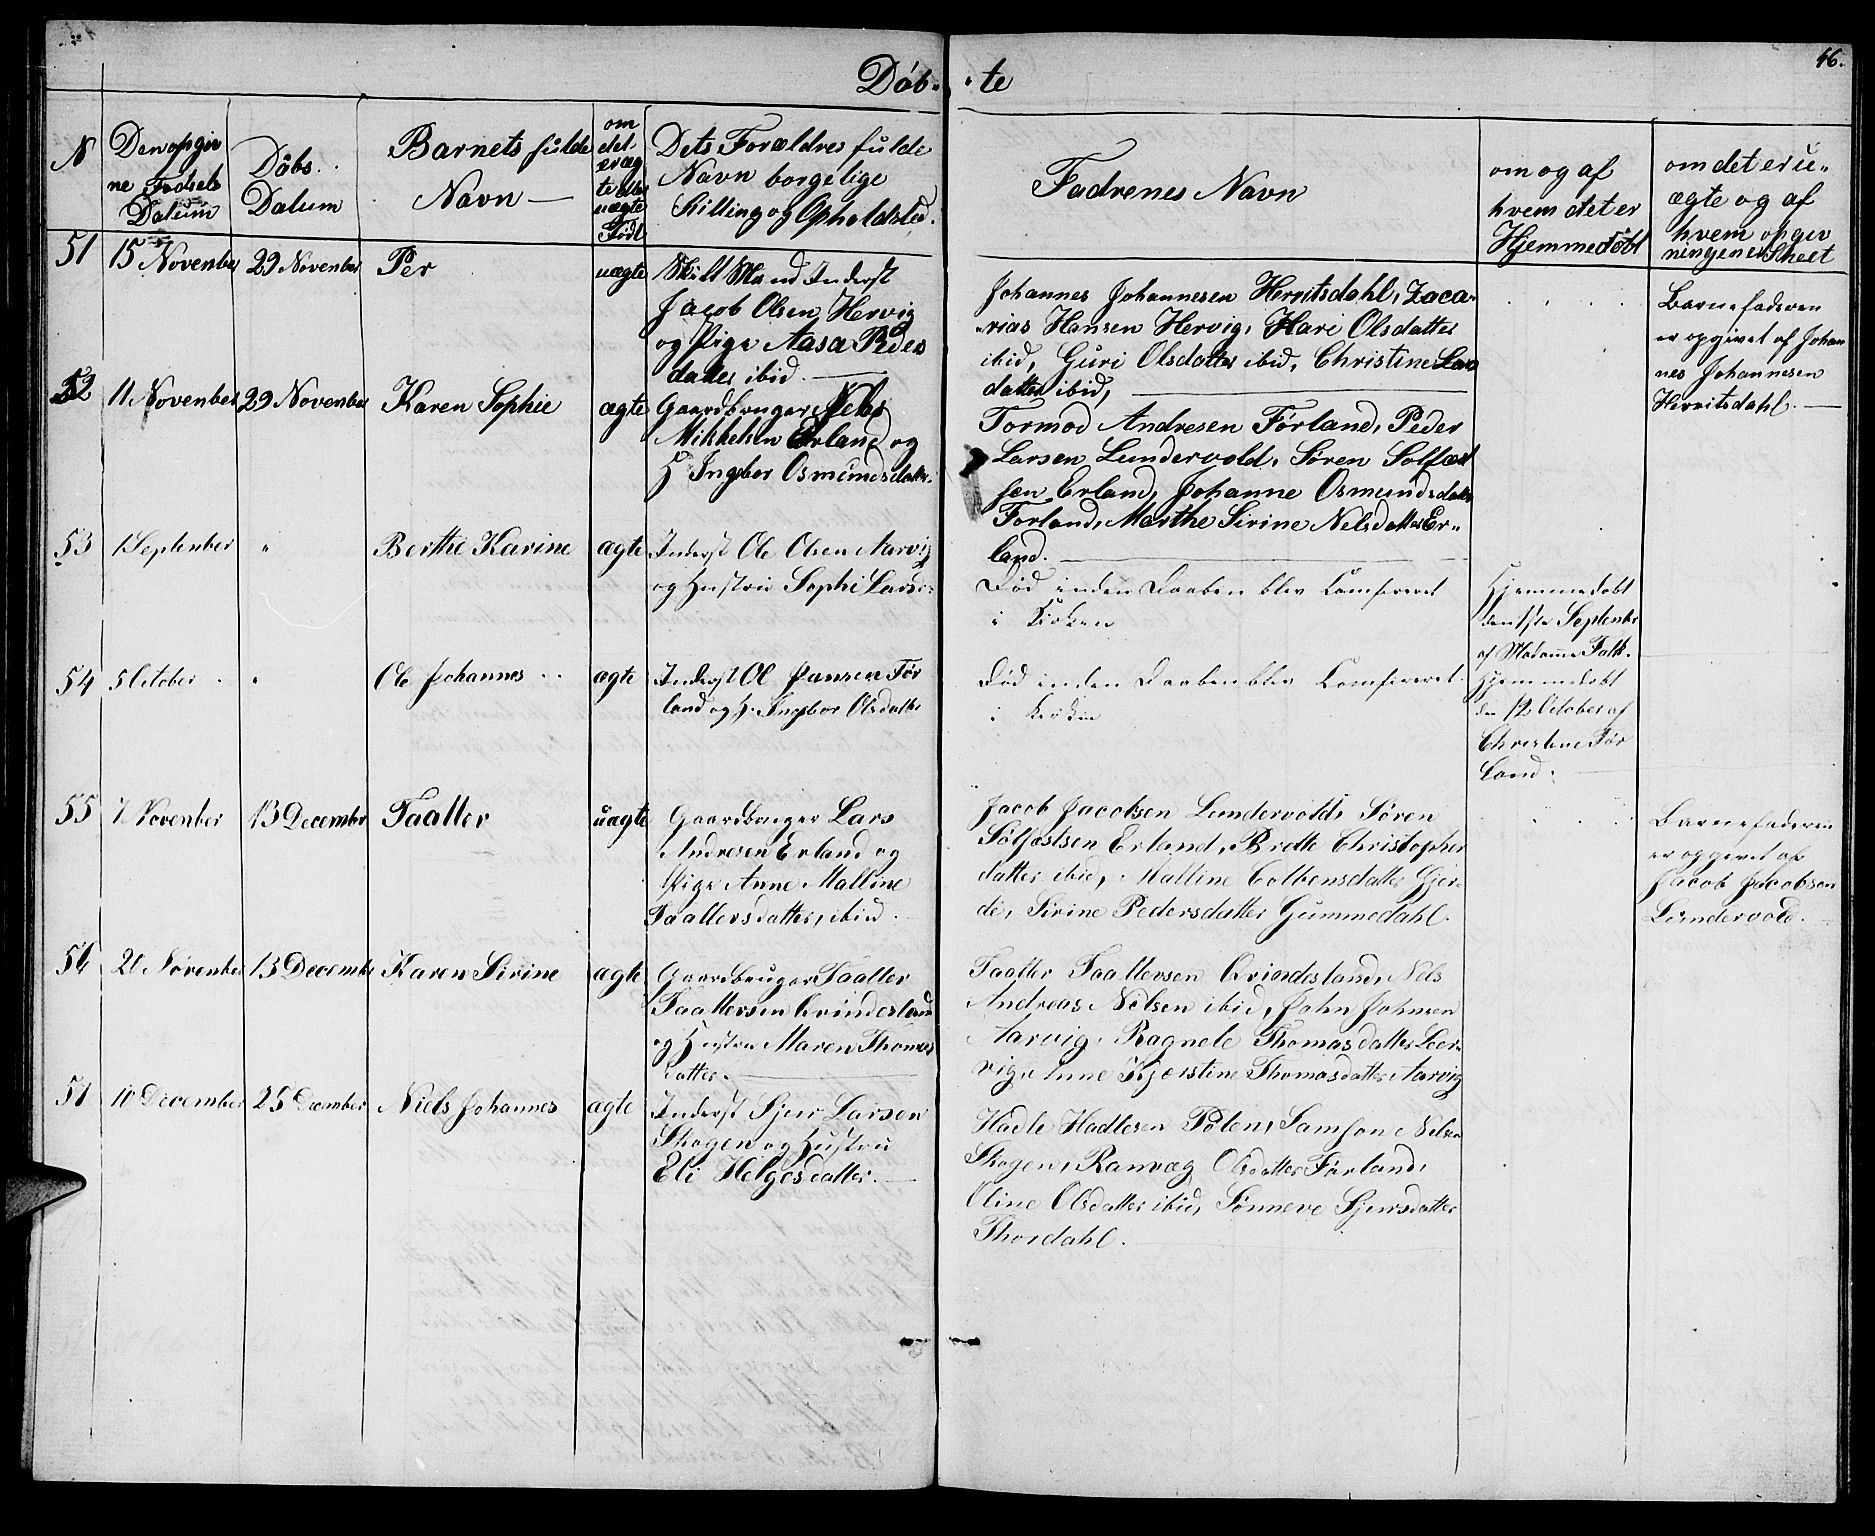 46.
Døb- -te
N
Den opgiv
ne Fødsels
Datum
Döbs
Datum
Barnets fulde
Navn
om
det
er æg
te eller
uægte
Född
Dets Forældres fulde
Navn borgelige
Stilling og Opholdsted.
Fadrenes Navn
om og af
hvem det er
Hjemmedöbt
om det er u-
ægte og af
hvem opgiv
ningen er Skeet
51 15 November 29 November Per uægte
Jacob Olsen Hervig
og Pige Aasa Peders
datter ibid.
Johannes Johannesen Hervitsdahl, Zaca-
-rias Hansen Hervig, Kari Olsdatter
ibid, Guri Olsdatter ibid, Christine Lars
datter ibid,
Barnefaderen
er opgivet af Johan
nes Johannesen
Hervitsdahl.
52 11 November 29 November Karen Sophie ægte
Gaardbruger Nels
Mikkelsen Erland og
H Ingebor Osmundsdatter.
Tormod Andresen Förland, Peder
Larsen Lundervold, Sören Solfæst
sen Erland, Johanne Osmundsdatter
Forland, Marthe Sirine Nelsdatter Er-
land.
53 1 September " Berthe Karine ægte
Inderst Ole Olsen Aarvig
og Hustru Sophi Larsd:
Död inden Daaben blev
i Kirken
Hjemmedöbt
den 1ste September
af Madamme Falk.
54 5 October " Ole Johannes ægte
Inderst Ol Jansen För
land og H. Ingebor Olsdatter
Död inden Daaben blev
i Kirken
Hjemmedöbt
den 12 October af
Christine För
land.
55 7 November 13 December Taaller uægte
Gaardbruger Lars
Andresen Erland og
Pige Anne Malline
Taallersdatter, ibid.
Jacob Jacobsen Lundervold, Sören
Sölfæstsen Erland, Brette Christopher
datter ibid, Malline Colbensdatter Gjer-
de, Sirine Pedersdatter Gummedahl.
Barnefaderen
er opgivet af
Jacob Jacobsen
Lundervold.
56 20 November 13 December Karen Sirine ægte
Gaardbruger Taaller
Taallersen Qvindesland
og Hustru Maren Thomas
datter.
Taaller Taallersen Qvindesland, Nels
Andreas Nelsen ibid, John Johnsen
Aarvig, Ragnele Thomasdatter Leer-
vig, Anne Kjerstine Thomasdatter Aarvig
57 10 December 25 December Niels Johannes ægte
Inderst Sjur Larsen
Skogen og Hustru
Eli Helgesdatter.
Hadle Hadlesen Pølen, Samson Nelsen
Skogen, Ranvæg Olsdatter Förland,
Oline Olsdatter ibid, Sönneve Sjursdatter
Thordahl.